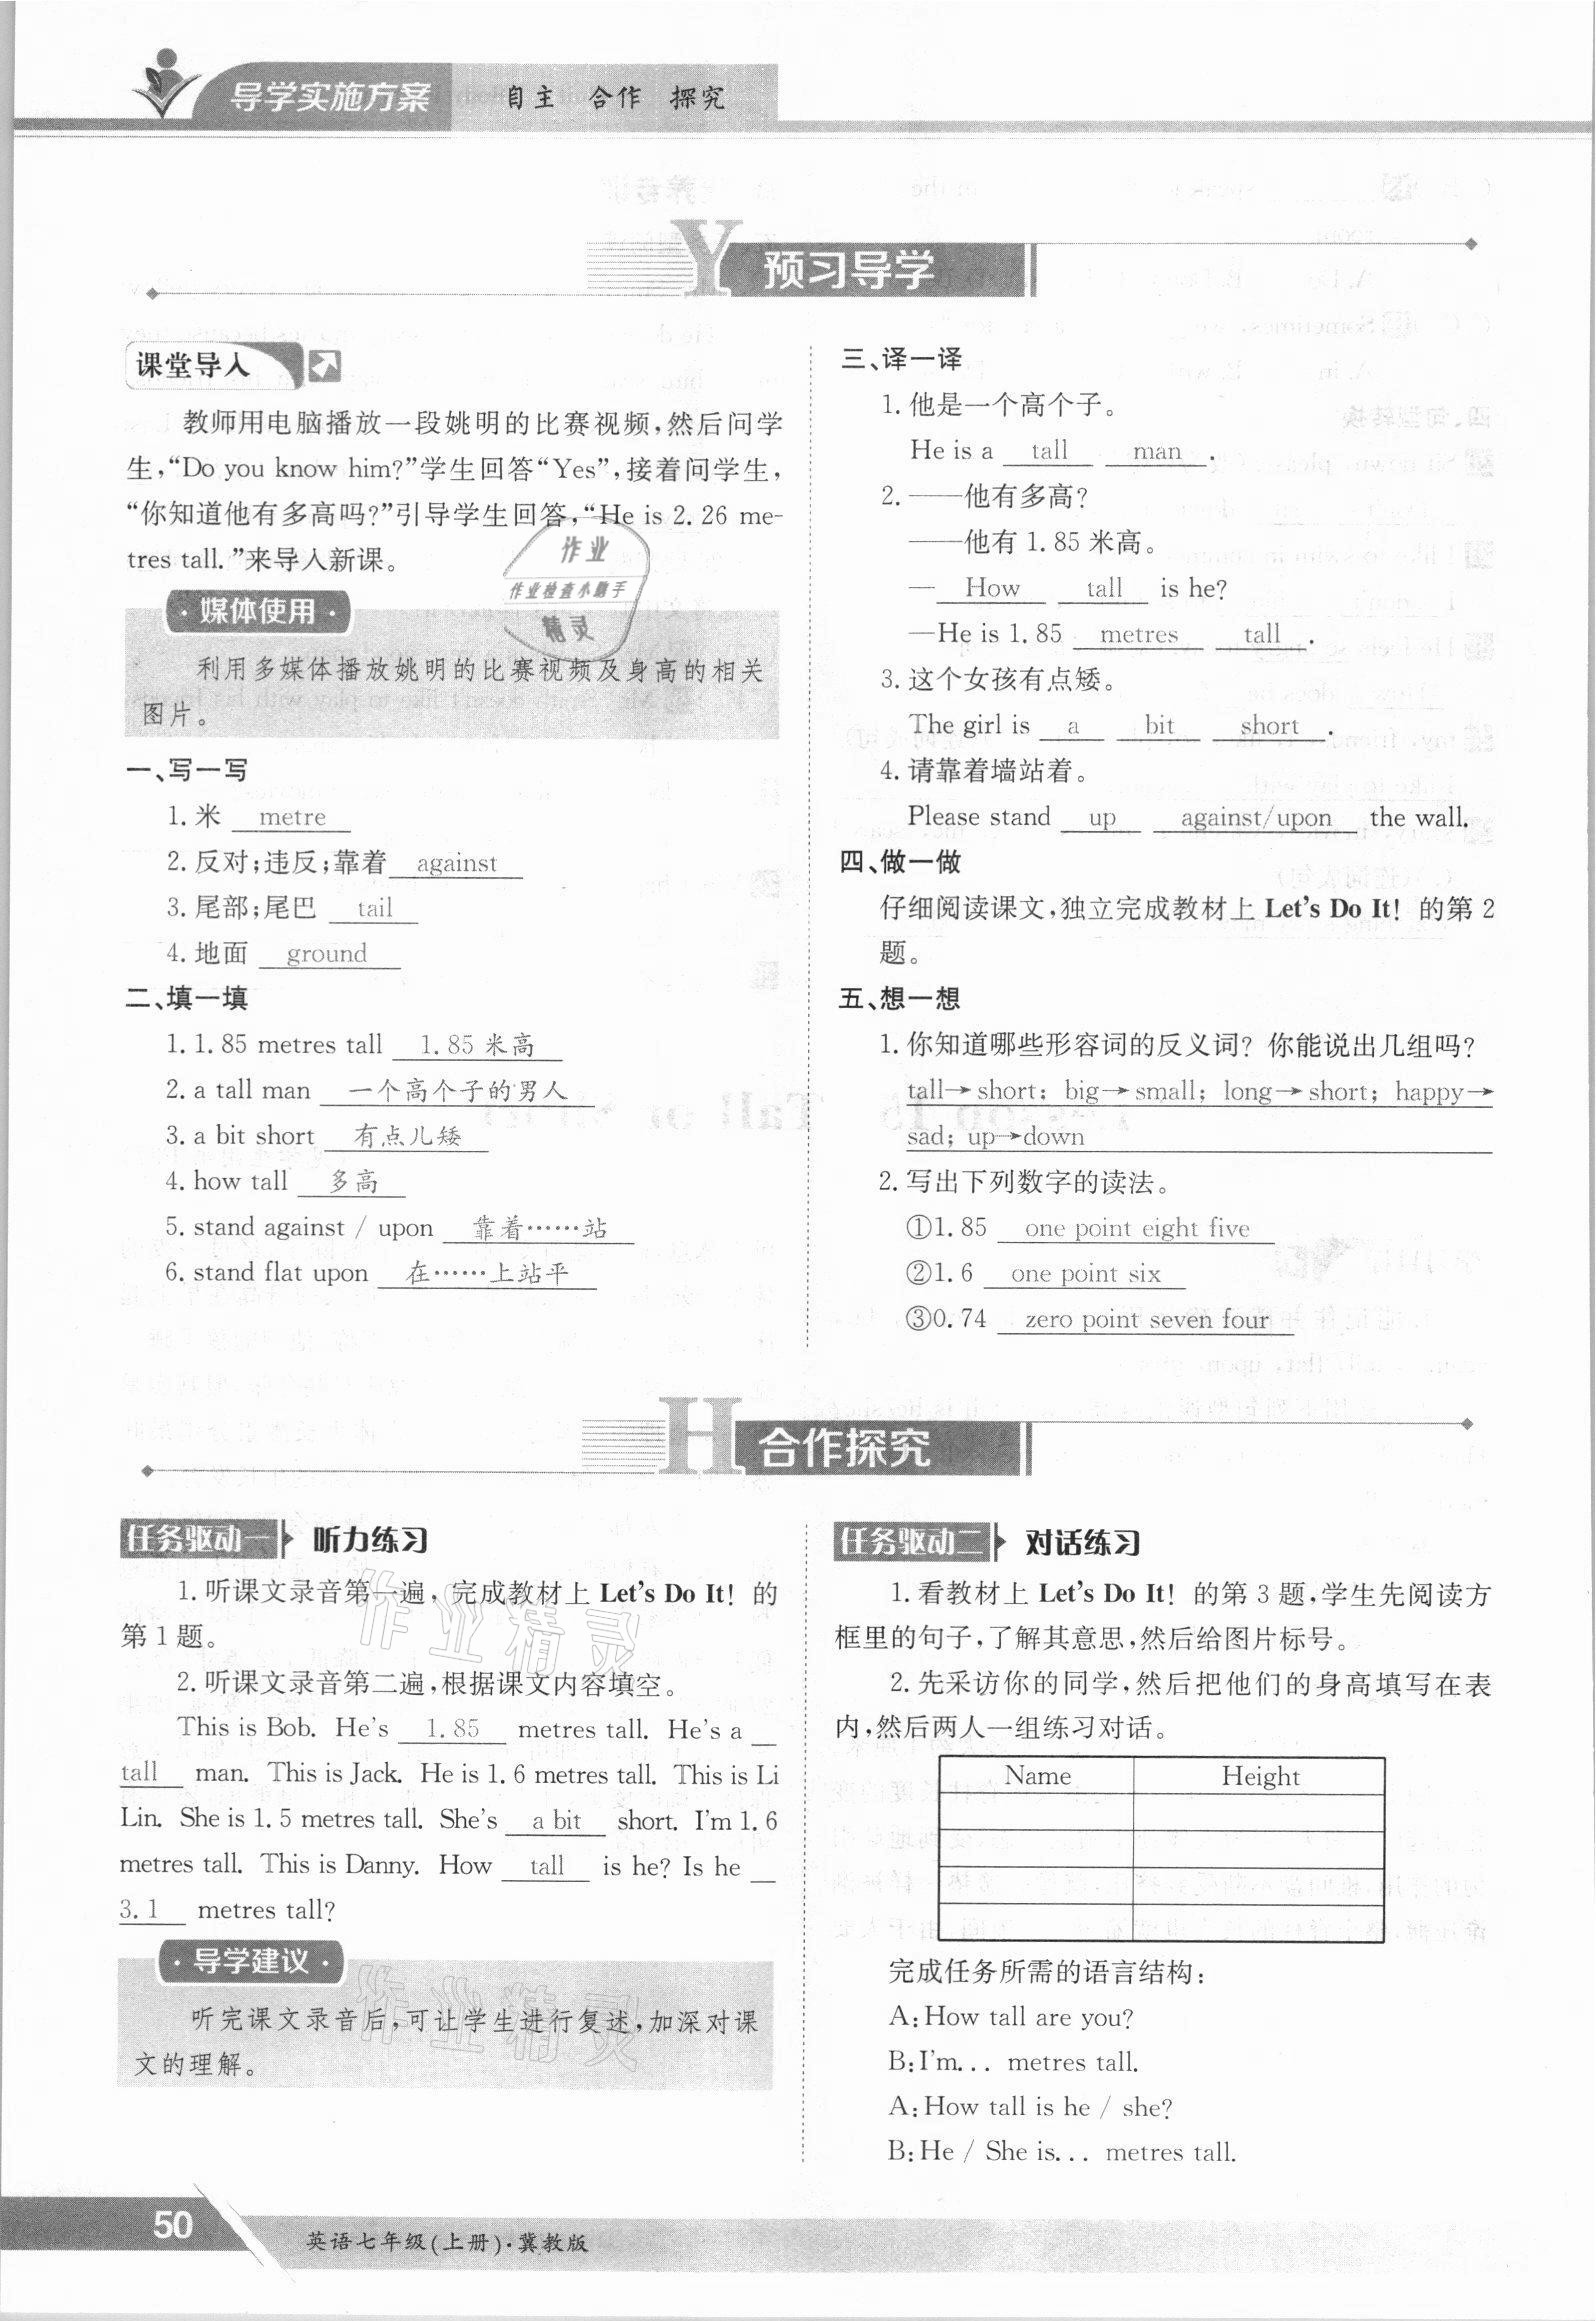 导学实施方案 自主 合作 探究
Y 预习导学
课堂导入
教师用电脑播放一段姚明的比赛视频,然后问学
生,“Do you know him?”学生回答“Yes”,接着问学生,
“你知道他有多高吗?”引导学生回答,“He is 2.26 me-
tres tall.”来导入新课。
·媒体使用·
利用多媒体播放姚明的比赛视频及身高的相关
图片。
一、写一写
1. 米 metre
2. 反对;违反;靠着 against
3. 尾部;尾巴 tail
4. 地面 ground
二、填一填
1. 1.85 metres tall 1.85 米高
2. a tall man 一个高个子的男人
3. a bit short 有点儿矮
4. how tall 多高
5. stand against / upon 靠着……站
6. stand flat upon 在……上站平
三、译一译
1. 他是一个高个子。
He is a tall man .
2. ——他有多高?
——他有 1.85 米高。
— How tall is he?
—He is 1.85 metres tall .
3. 这个女孩有点矮。
The girl is a bit short .
4. 请靠着墙站着。
Please stand up against/upon the wall.
四、做一做
仔细阅读课文,独立完成教材上 Let’s Do It! 的第 2
题。
五、想一想
1. 你知道哪些形容词的反义词? 你能说出几组吗?
tall→short; big→small; long→short; happy→
sad; up→down
2. 写出下列数字的读法。
①1.85 one point eight five
②1.6 one point six
③0.74 zero point seven four
作业
作业检查小助手
精灵
H 合作探究
任务驱动一 听力练习
1. 听课文录音第一遍, 完成教材上 Let’s Do It! 的
第 1 题。
2. 听课文录音第二遍,根据课文内容填空。
This is Bob. He’s 1.85 metres tall. He’s a
tall man. This is Jack. He is 1.6 metres tall. This is Li
Lin. She is 1.5 metres tall. She’s a bit short. I’m 1.6
metres tall. This is Danny. How tall is he? Is he
3.1 metres tall?
·导学建议·
听完课文录音后,可让学生进行复述,加深对课
文的理解。
作业精灵
作业精灵
任务驱动二 对话练习
1. 看教材上 Let’s Do It! 的第 3 题,学生先阅读方
框里的句子,了解其意思,然后给图片标号。
2. 先采访你的同学,然后把他们的身高填写在表
内,然后两人一组练习对话。
Name Height
完成任务所需的语言结构:
A:How tall are you?
B:I’m... metres tall.
A:How tall is he / she?
B:He / She is... metres tall.
50 英语七年级(上册)·冀教版